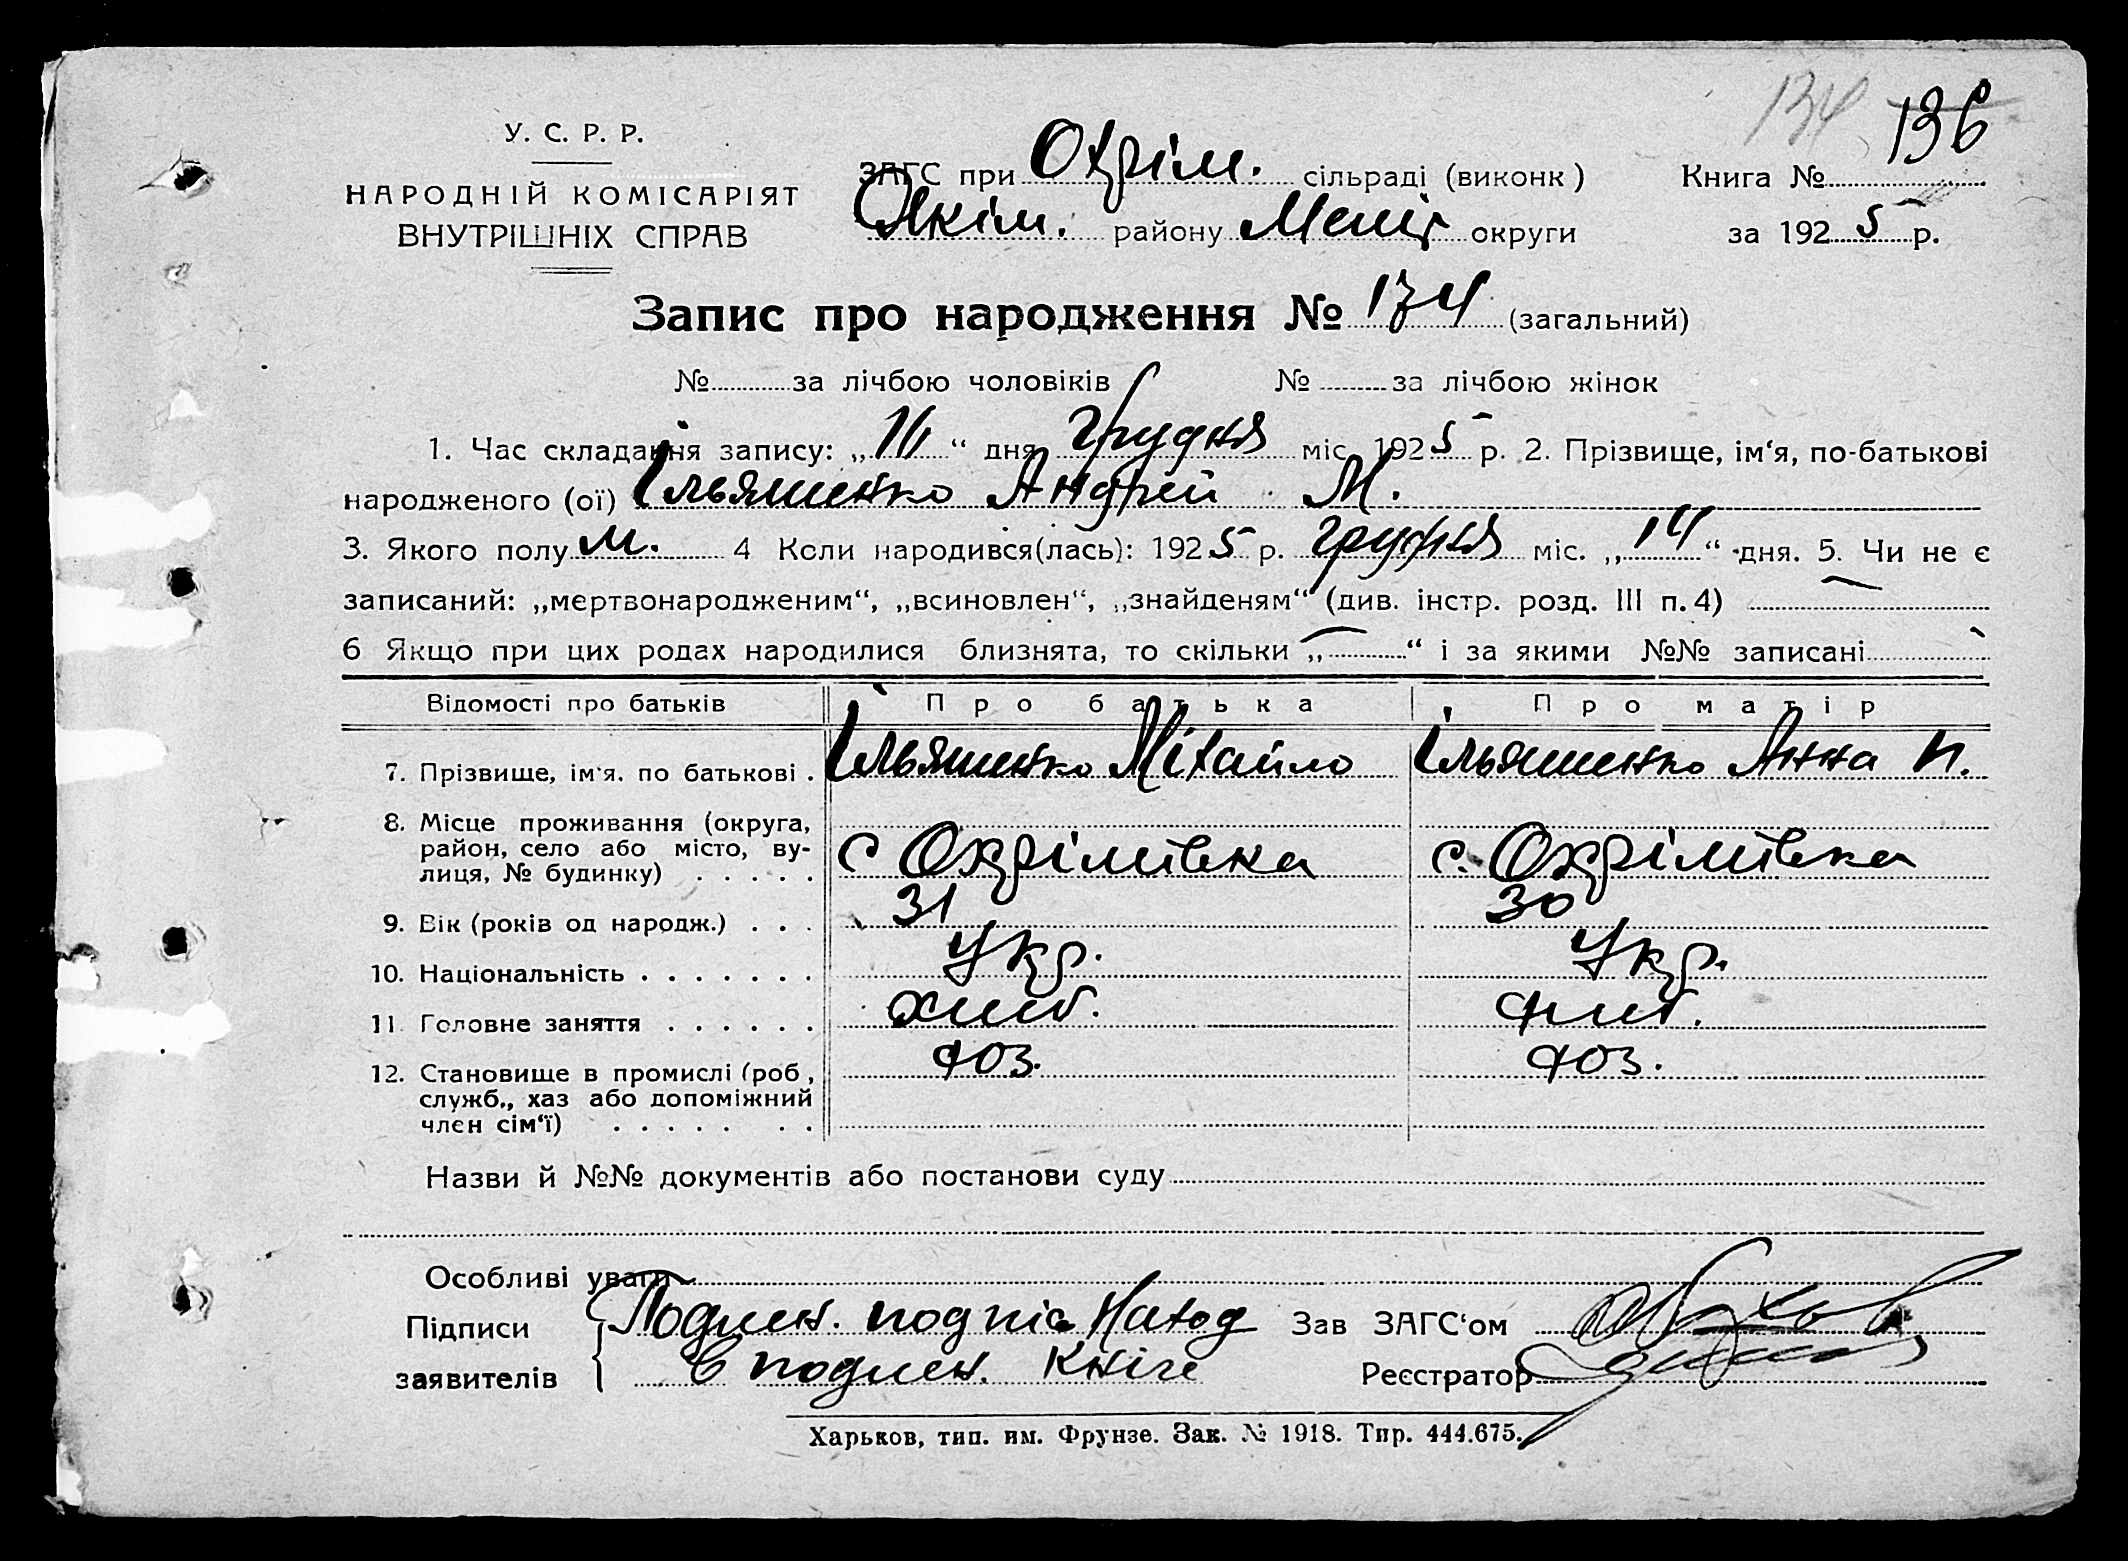 134 136
У. С. Р. Р.
НАРОДНІЙ КОМІСАРІЯТ
ВНУТРІШНІХ СПРАВ
ЗАГС при Охрім. сільраді (виконк) Книга №
Якім. району Меліт округи за 1925 р.
Запис про народження № 134 (загальний)
№ за лічбою чоловіків № за лічбою жінок
1. Час складання запису: „16“ дня грудня міс. 1925 р. 2. Прізвище, ім‘я, по-батькові
народженого (ої) Ільяшенко Андрей М.
3. Якого полу м. 4 Коли народився(лась): 1925 р. грудня міс. „14“ дня. 5. Чи не є
записаний: „мертвонародженим“, „всиновлен“, „знайденям“ (див. інстр. розд. III п. 4) —
6 Якщо при цих родах народилися близнята, то скільки „—“ і за якими №№ записані
Відомості про батьків Про батька Про матір
7. Прізвище, ім‘я. по батькові . Ільяшенко Міхайло Ільяшенко Анна И.
8. Місце проживання (округа,
район, село або місто, ву-
лиця, № будинку) . . . . . с Охрімівка с. Охрімівка
9. Вік (років од народж.) . . . 31 30
10. Національність . . . . . . . Укр. Укр.
11. Головне заняття . . . . . .
12. Становище в промислі (роб,
служб., хаз або допоміжний
член сім‘ї) . . . . . . .
Назви й №№ документів або постанови суду
Особливі уваги
Підписи Подлен. подпіс Наход Зав ЗАГС‘ом
заявителів в подлен. Кніге Реєстратор
Харьков, тип. им. Фрунзе. Зак. № 1918. Тир. 444.675.